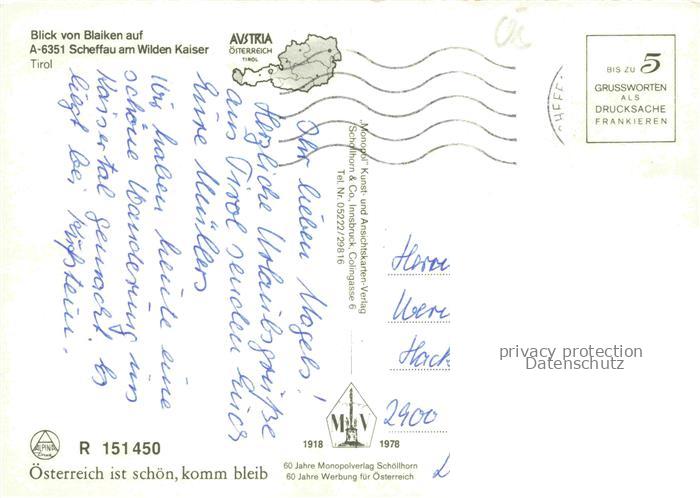 Blick von Blaiken auf
A-6351 Scheffau am Wilden Kaiser
Tirol
AVSTRIA
ÖSTERREICH
TIROL
BIS ZU 5
GRUSSWORTEN
ALS
DRUCKSACHE
FRANKIEREN
Ihr lieben Nagels!
Herzliche Urlaubsgrüße
aus Tirol senden Euch
Eure Müllers
Wir haben heute eine
schöne Wanderung ins
Kaisertal gemacht. Es
liegt bei Kufstein.
„Monopol" Kunst- und Ansichtskarten-Verlag
Schöllhorn & Co., Innsbruck, Colingasse 6
Tel. Nr. 05222/29816
Herrn
Hack
2900
privacy protection
Datenschutz
M V
1918 1978
60 Jahre Monopolverlag Schöllhorn
60 Jahre Werbung für Österreich
ALPINA
Druck
R 151450
Österreich ist schön, komm bleib